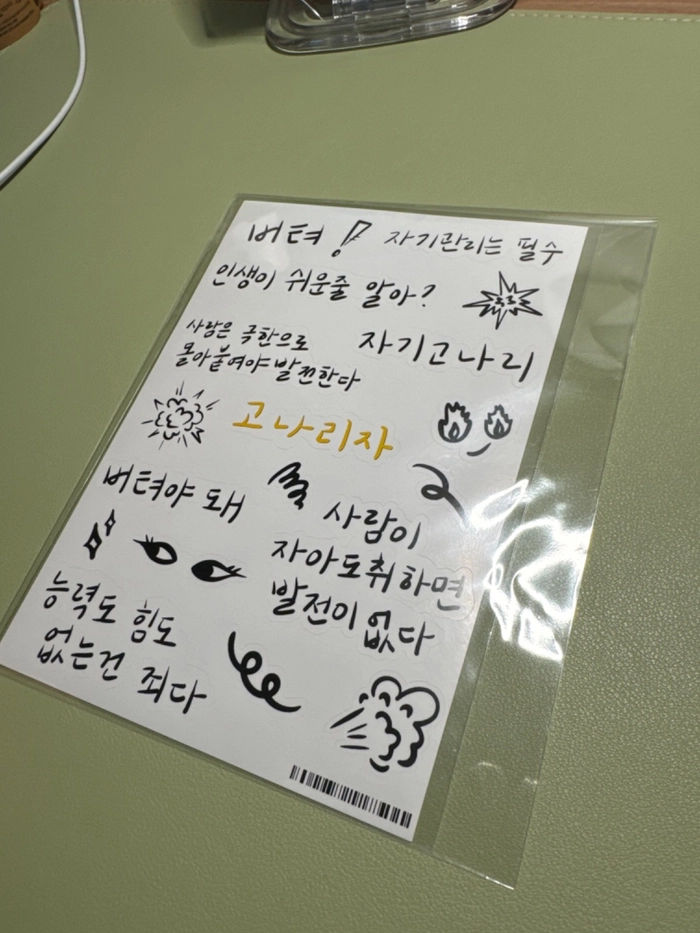 버텨! 자기관리는 필수
인생이 쉬운줄 알아?
사람은 극한으로
몰아붙여야 발전한다
자기고나리
고나리자
버텨야 돼
사람이
자아도취하면
발전이 없다
능력도 힘도
없는건 죄다